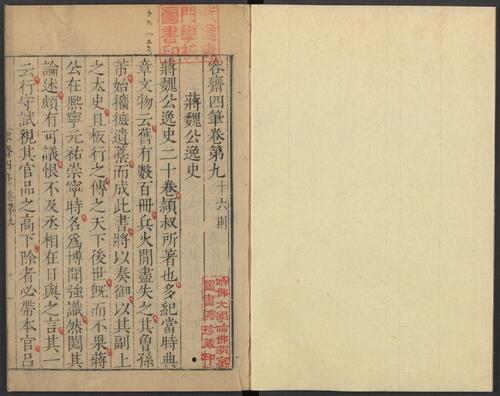 容齋四筆卷第九 十六則
蔣魏公逸史
蔣魏公逸史二十卷穎叔所著也多紀當時典
章文物云舊有數百冊兵火閒盡失之其曾孫
芾始攟摭遺藁而成此書將以奏御以其副上
之太史且板行之傳之天下後世旣而不果蔣
公在熙寧元祐崇寧時名爲博聞強識然閱其
論述頗有可議恨不及丞相在日與之言其一
云行守試視其官品之高下除者必帶本官呂
哈佛大學哈佛燕京
圖書館珍藏印
門學校
圖書印